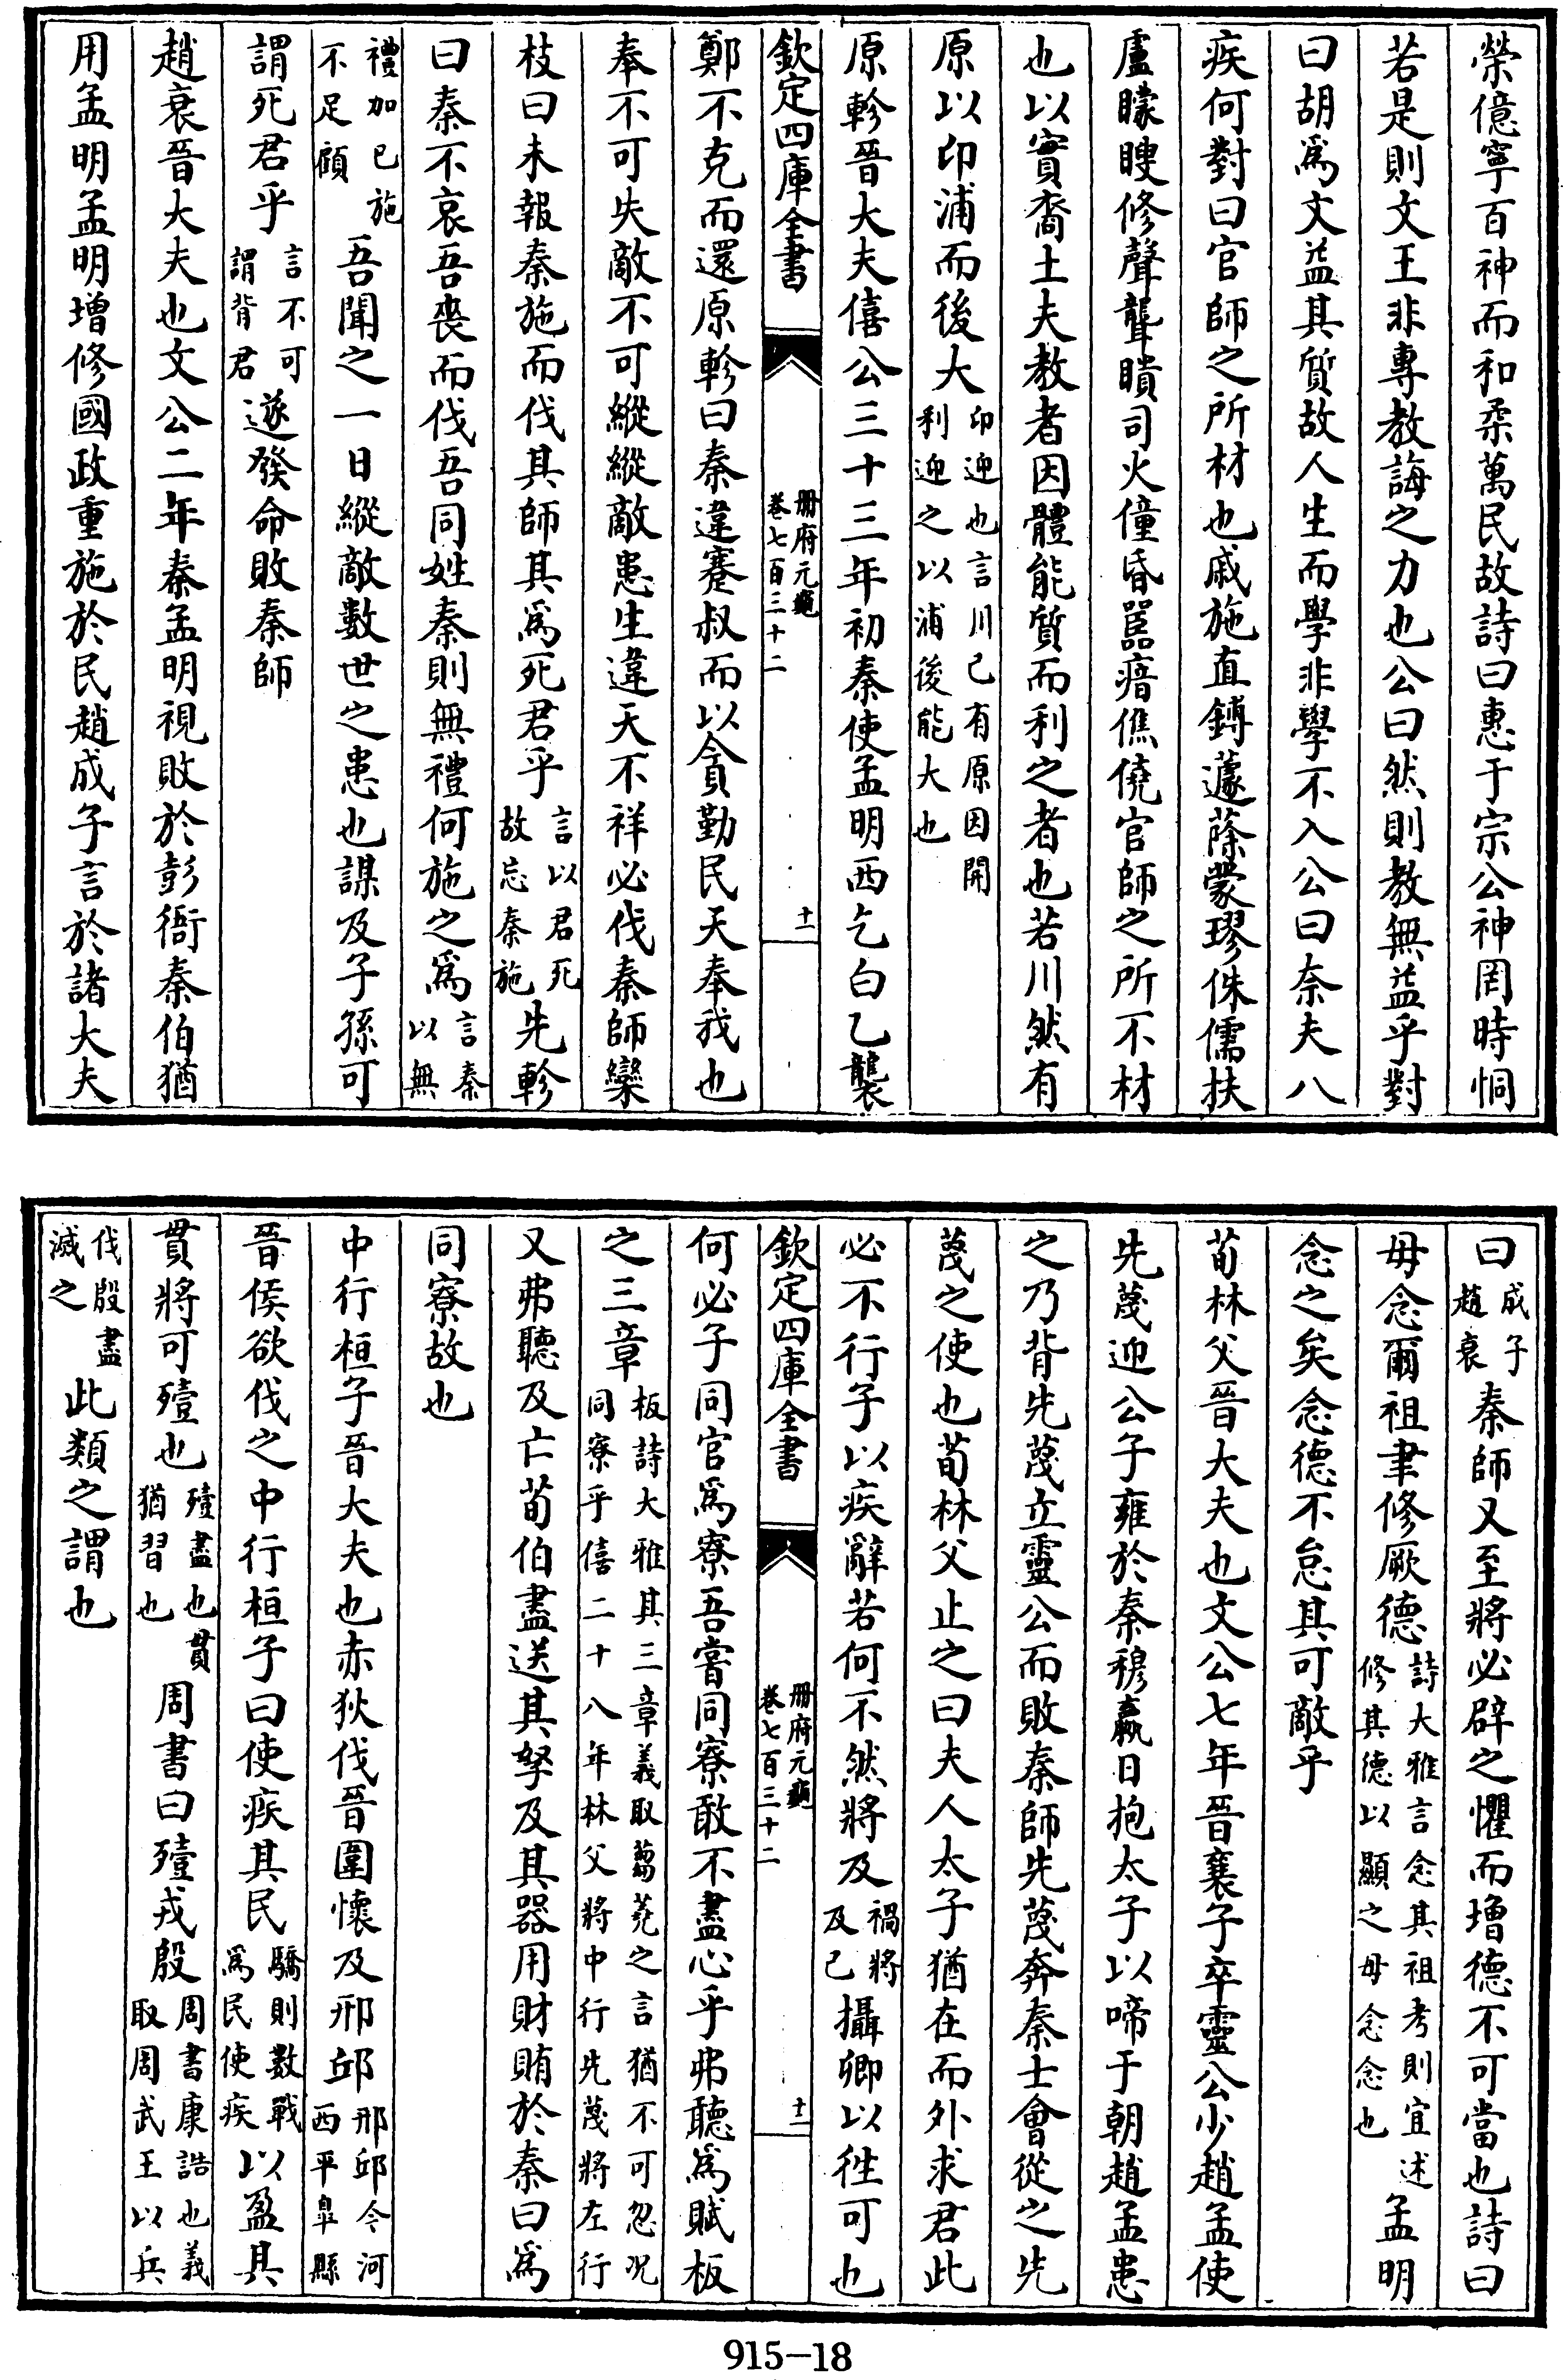 榮億寧百神而和柔萬民故詩曰惠于宗公神罔時恫
若是則文王非專教誨之力也公曰然則教無益乎對
曰胡爲文益其質故人生而學非學不入公曰奈夫八
疾何對曰官師之所材也戚施直鎛蘧蒢蒙璆侏儒扶
盧矇瞍修聲聾聵司火僮昏嚚瘖僬僥官師之所不材
也以實裔土夫教者因體能質而利之者也若川然有
原以印浦而後大印迎也言川已有原因開利迎之以浦後能大也
原軫晉大夫僖公三十三年初秦使孟明西乞白乙襲
欽定四庫全書 冊府元龜 卷七百三十二 十一
鄭不克而還原軫曰秦違蹇叔而以貪勤民天奉我也
奉不可失敵不可縱縱敵患生違天不祥必伐秦師欒
枝曰未報秦施而伐其師其爲死君乎言以君死故忘秦施先軫
曰秦不哀吾喪而伐吾同姓秦則無禮何施之爲言秦以無
禮加已施不足顧吾聞之一日縱敵數世之患也謀及子孫可
謂死君乎言不可謂背君遂發命敗秦師
趙衰晉大夫也文公二年秦孟明視敗於彭衙秦伯猶
用孟明孟明增修國政重施於民趙成子言於諸大夫
曰成子趙衰秦師又至將必辟之懼而增德不可當也詩曰
毋念爾祖聿修厥德詩大雅言念其祖考則宜述修其德以顯之毋念念也孟明
念之矣念德不怠其可敵乎
荀林父晉大夫也文公七年晉襄子卒靈公少趙孟使
先蔑迎公子雍於秦穆嬴日抱太子以啼于朝趙孟患
之乃背先蔑立靈公而敗秦師先蔑奔秦士會從之先
蔑之使也荀林父止之曰夫人太子猶在而外求君此
必不行子以疾辭若何不然將及禍將及己攝卿以徃可也
欽定四庫全書 冊府元龜 卷七百三十二 十一
何必子同官爲寮吾嘗同寮敢不盡心乎弗聽爲賦板
之三章板詩大雅其三章義取芻蕘之言猶不可忽况同寮乎僖二十八年林父將中行先蔑將左行
又弗聽及亡荀伯盡送其孥及其器用財賄於秦曰爲
同寮故也
中行桓子晉大夫也赤狄伐晉圍懷及邢邱邢邱今河西平臯縣
晉侯欲伐之中行桓子曰使疾其民驕則數戰爲民使疾以盈其
貫將可殪也殪盡也貫猶習也周書曰殪戎殷周書康誥也義取周武王以兵
伐殷盡滅之此類之謂也
915-18